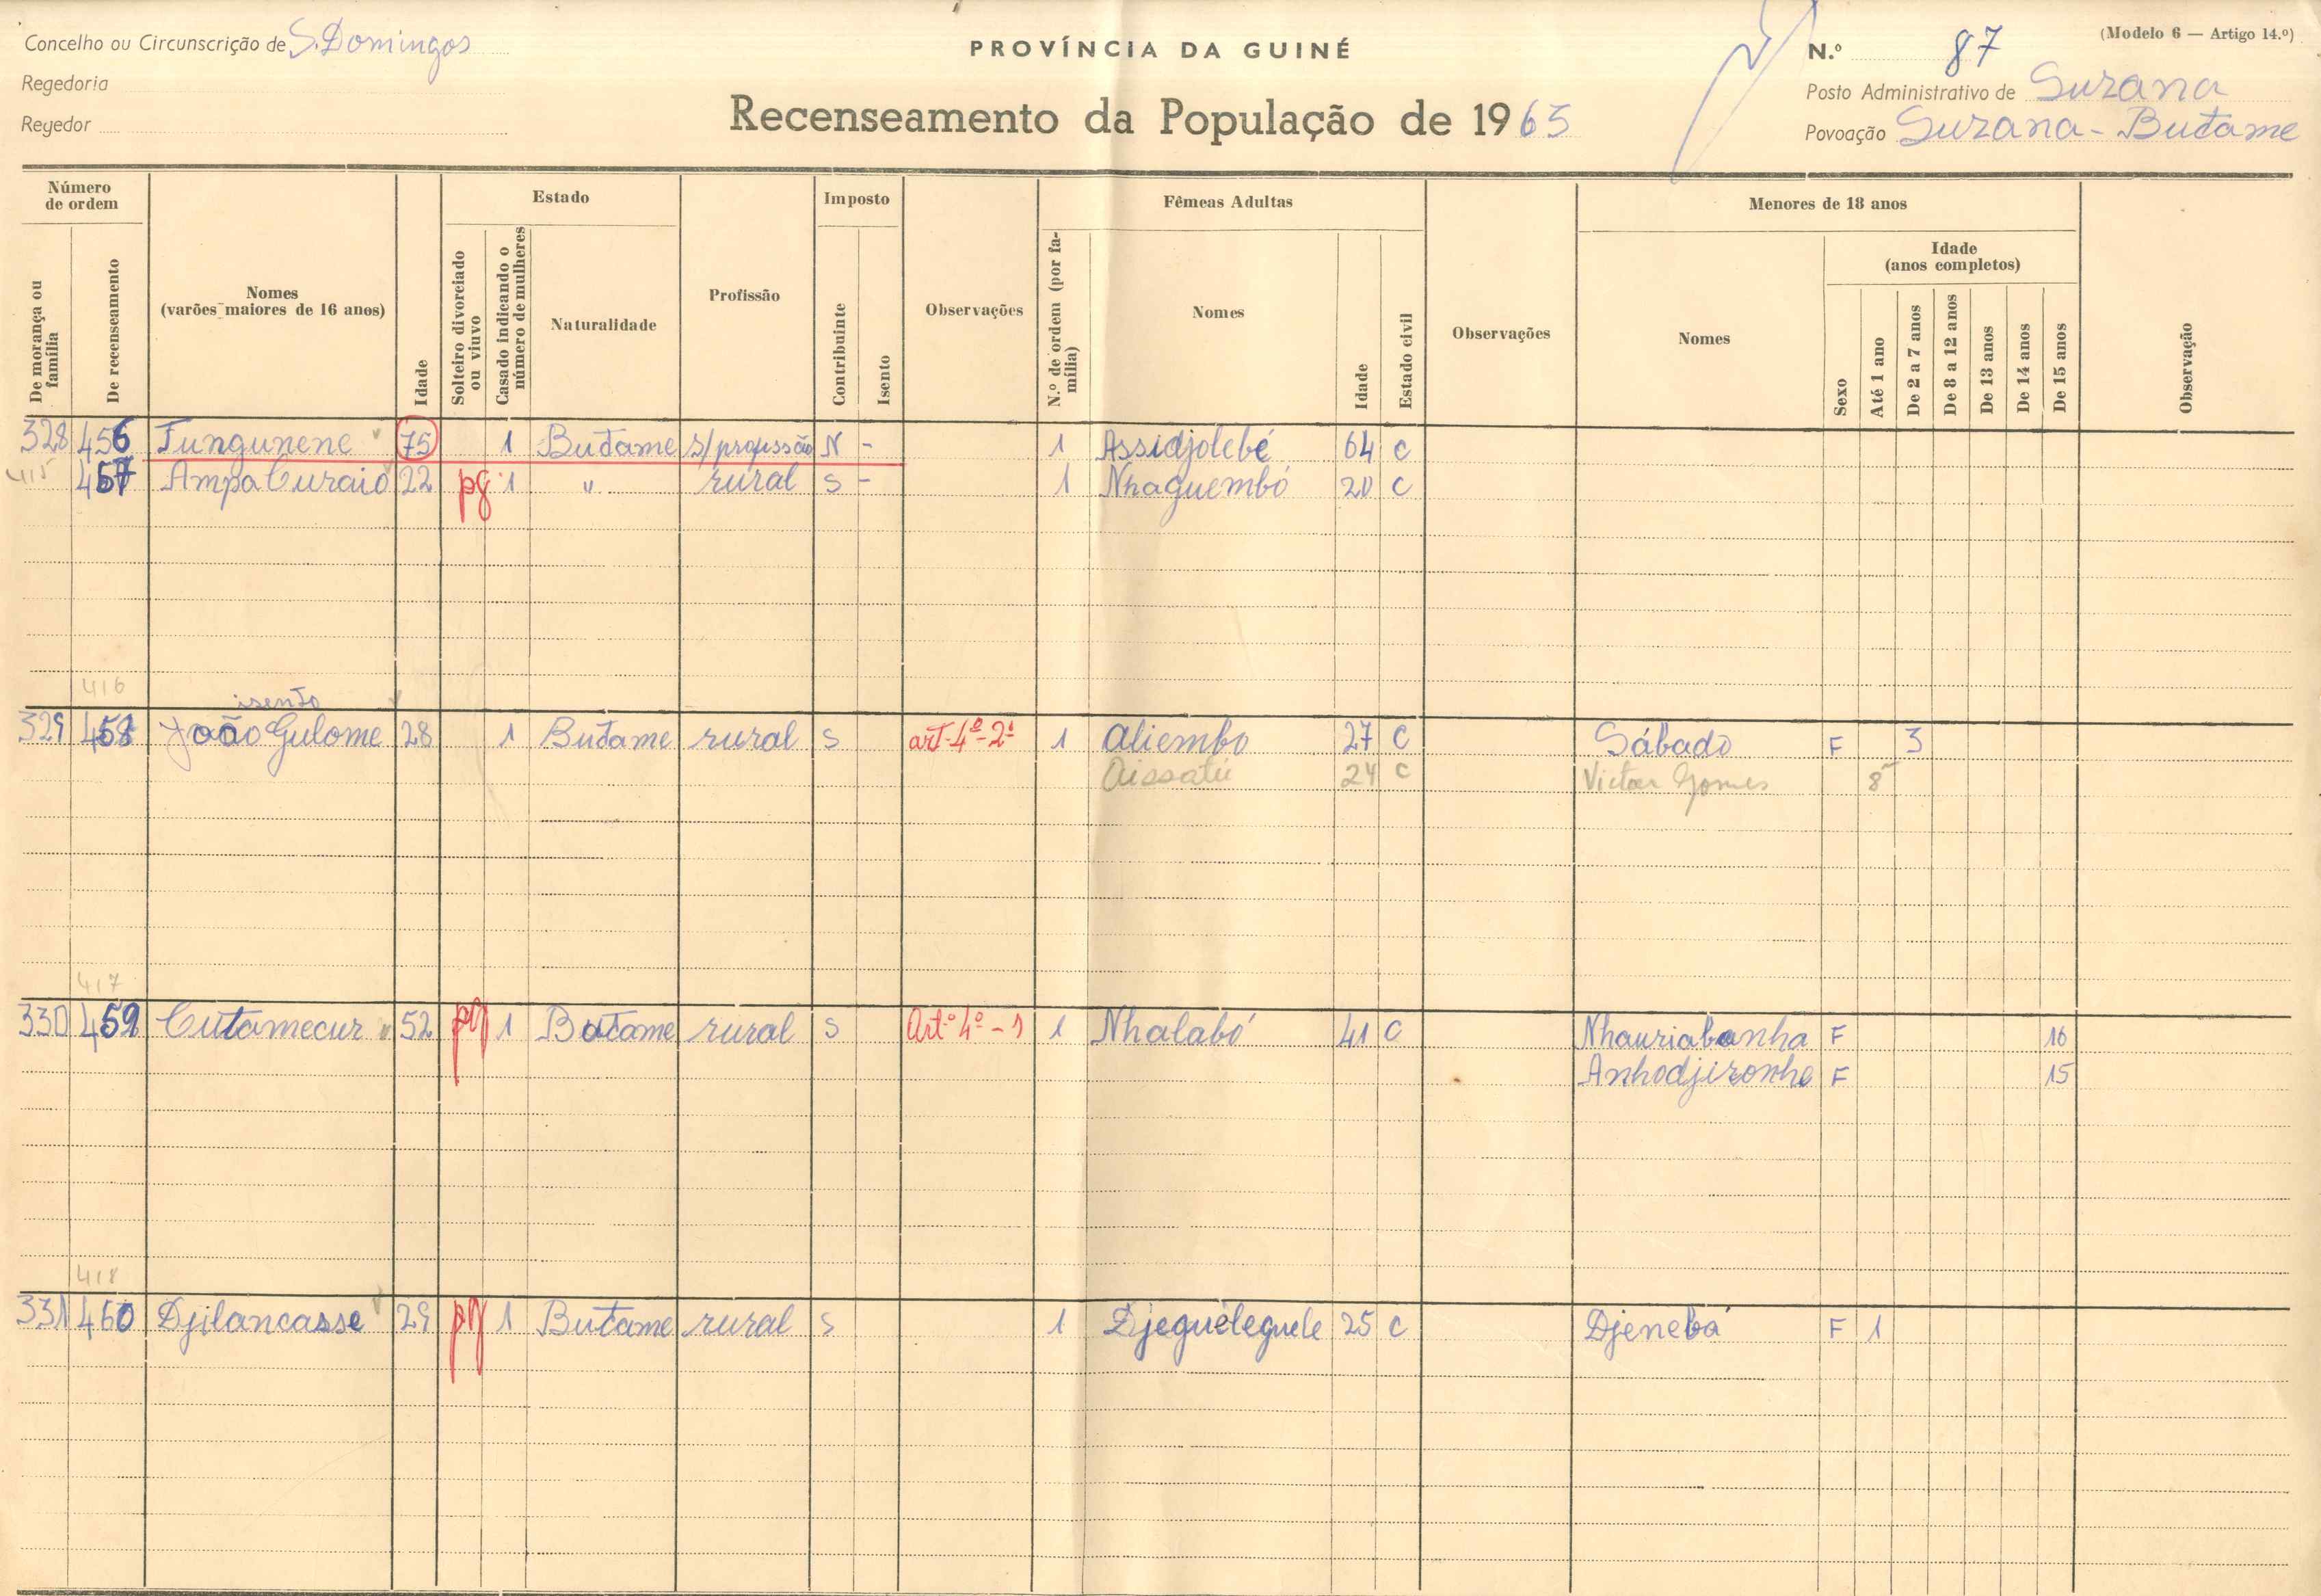 Concelho ou Circunscrição de S. Domingos
Regedoria
Regedor
PROVÍNCIA DA GUINÉ
Recenseamento da População de 1965
(Modelo 6 — Artigo 14.º)
N.º 87
Posto Administrativo de Suzana
Povoação Suzana - Butame
Número de ordem
De morança ou família
De recenseamento
Nomes (varões maiores de 16 anos)
Idade
Estado
Solteiro divorciado ou viuvo
Casado indicando o número de mulheres
Naturalidade
Profissão
Imposto
Contribuinte
Isento
Observações
Fêmeas Adultas
N.º de ordem (por família)
Nomes
Idade
Estado civil
Observações
Menores de 18 anos
Nomes
Sexo
Idade (anos completos)
Até 1 ano
De 2 a 7 anos
De 8 a 12 anos
De 13 anos
De 14 anos
De 15 anos
Observação
328 456 Tungunene 75 1 Butame s/ profissão N - 1 Assidjolebé 64 C
415 457 Ampa Curaio 22 pg 1 " rural S - 1 Nhaguembó 20 C
416
isento
329 458 João Gulome 28 1 Butame rural S art 4º-2º 1 Aliembo 27 C Sábado F 3
Aissatú 24 C Victor Gomes 8
417
330 459 Cutamecur 52 pg 1 Butame rural S Artº 4º - 1 1 Nhalabó 41 C Nhauriabanha F 16
Anhodjironhe F 15
418
331 460 Djilancasse 29 pg 1 Butame rural S 1 Djeguéleguele 25 C Djenebá F 1